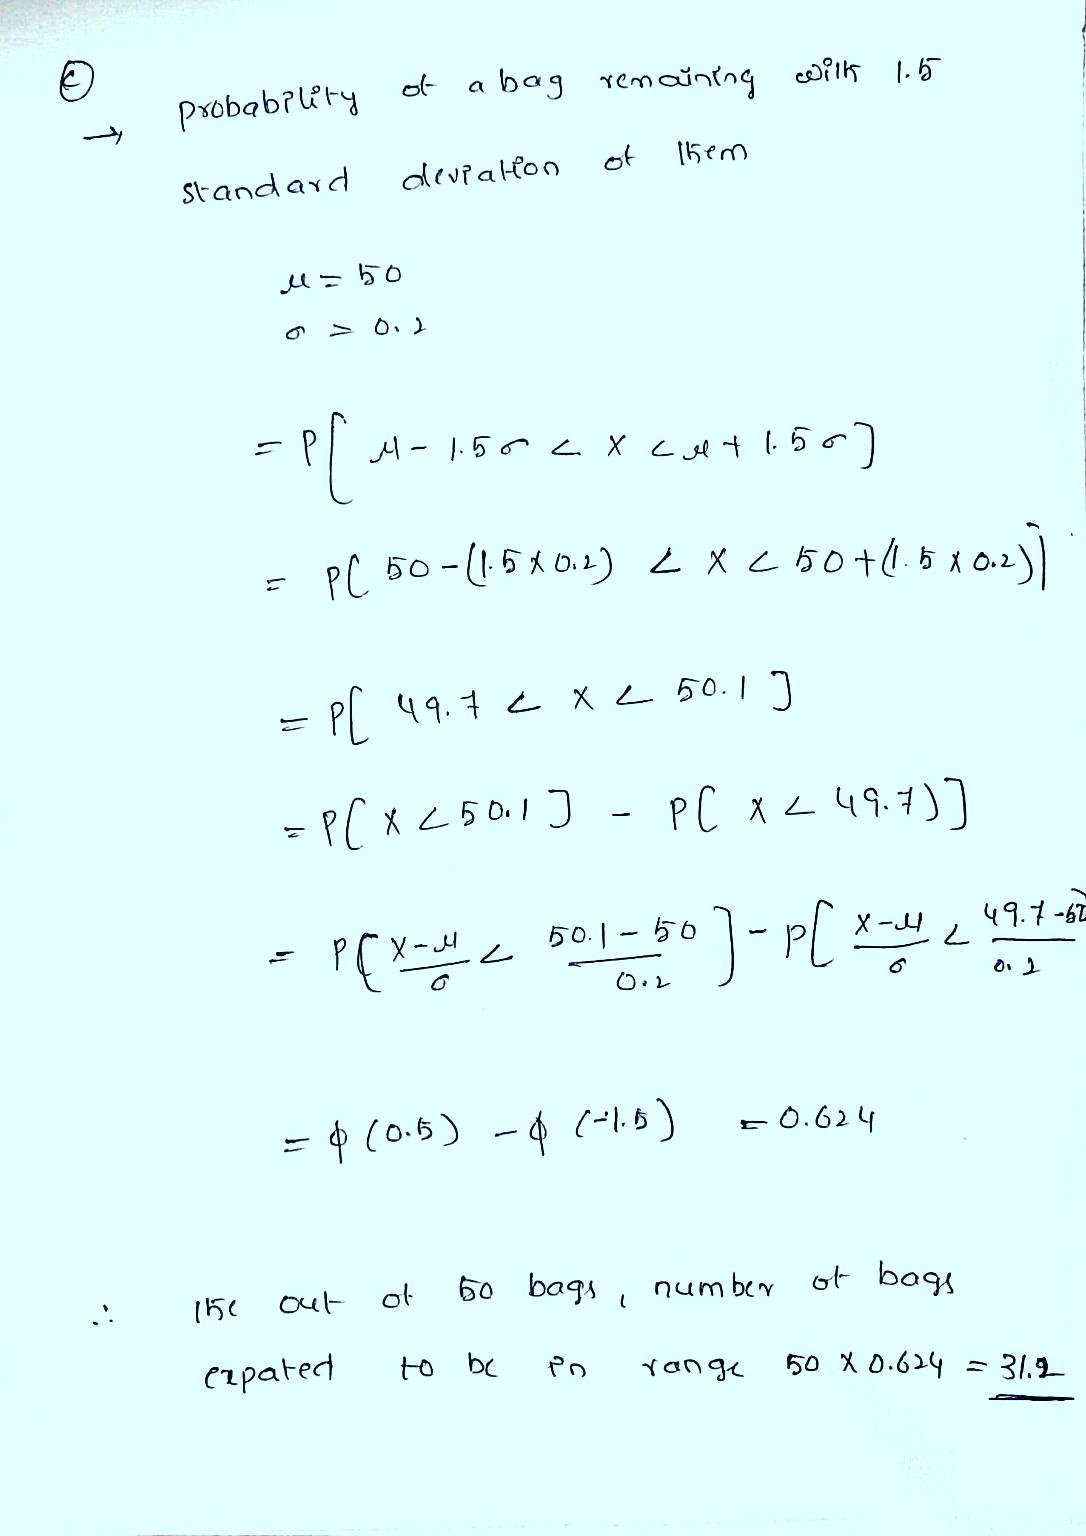 (c)
→ probability of a bag remaining with 1.5
standard deviation of them
μ = 50
σ = 0.2
= P[ μ - 1.5σ < X < μ + 1.5σ ]
= P[ 50 - (1.5 x 0.2) < X < 50 + (1.5 x 0.2) ]
= P[ 49.7 < X < 50.1 ]
= P[ X < 50.1 ] - P[ X < 49.7)]
= P[ X-μ/σ < 50.1 - 50/0.2 ] - P[ X-μ/σ < 49.7 - 50/0.2
= ϕ (0.5) - ϕ (-1.5) = 0.624
∴ the out of 50 bags, number of bags
expated to be in range 50 x 0.624 = 31.2